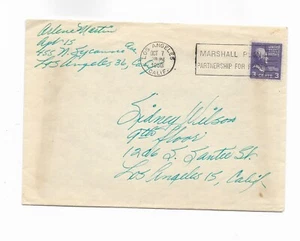 Arlene Martin
Apt 15
455 N. Sycamore Ave
Los Angeles 36, Ca
LOS ANGELES
OCT
CALIF.
MARSHALL
PARTNERSHIP FOR
3
Sidney Wilson
9th floor
1206 S. Santee St.
Los Angeles 15, Calif.